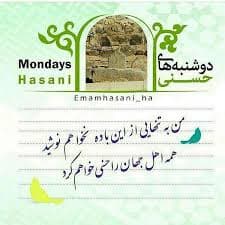 Mondays
Hasani
دوشنبه‌های
حسنی
Emamhasani_ha
من به تنهایی از این باده نخواهم نوشید
همه اهل جهان را حسنی خواهم کرد